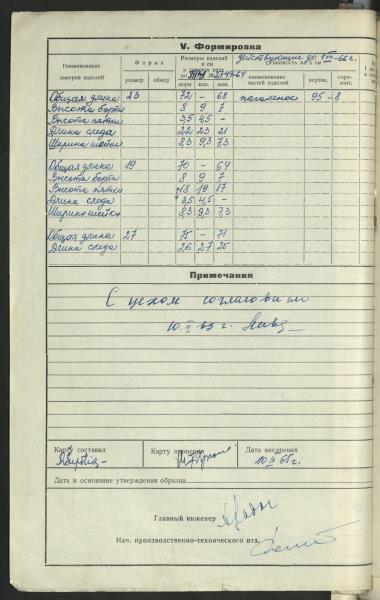 V. Формировка
действующие до 1/VII-66 г.
Наименование замеров изделий
Форма
размер
обмер
Размеры изделий в см
по 2749-64
норм
мак.
мин.
Плотность на 5 см
наименование частей изделий
вертик.
гори-зонт.
Общая длина 23 72 – 68 паголенок 95 – 8
Высота борта 8 9 7
Высота пятки 3,5 4,5 –
Длина следа 22 23 21
Ширина шейки 8,3 9,3 7,3
Общая длина 19 70 – 64
Высота борта 8 9 7
Высота пятки 18 19 17
Длина следа 3,5 4,5 –
Ширина шейки 8,3 9,3 7,3
Общая длина 27 75 – 71
Длина следа 26 27 25
Примечания
С цехом согласовали
10/II 65 г.
Карту составил
Карту проверил
Дата внедрения
10/II 65 г.
Дата и основание утверждения образца
Главный инженер
Нач. производственно-технического отд.